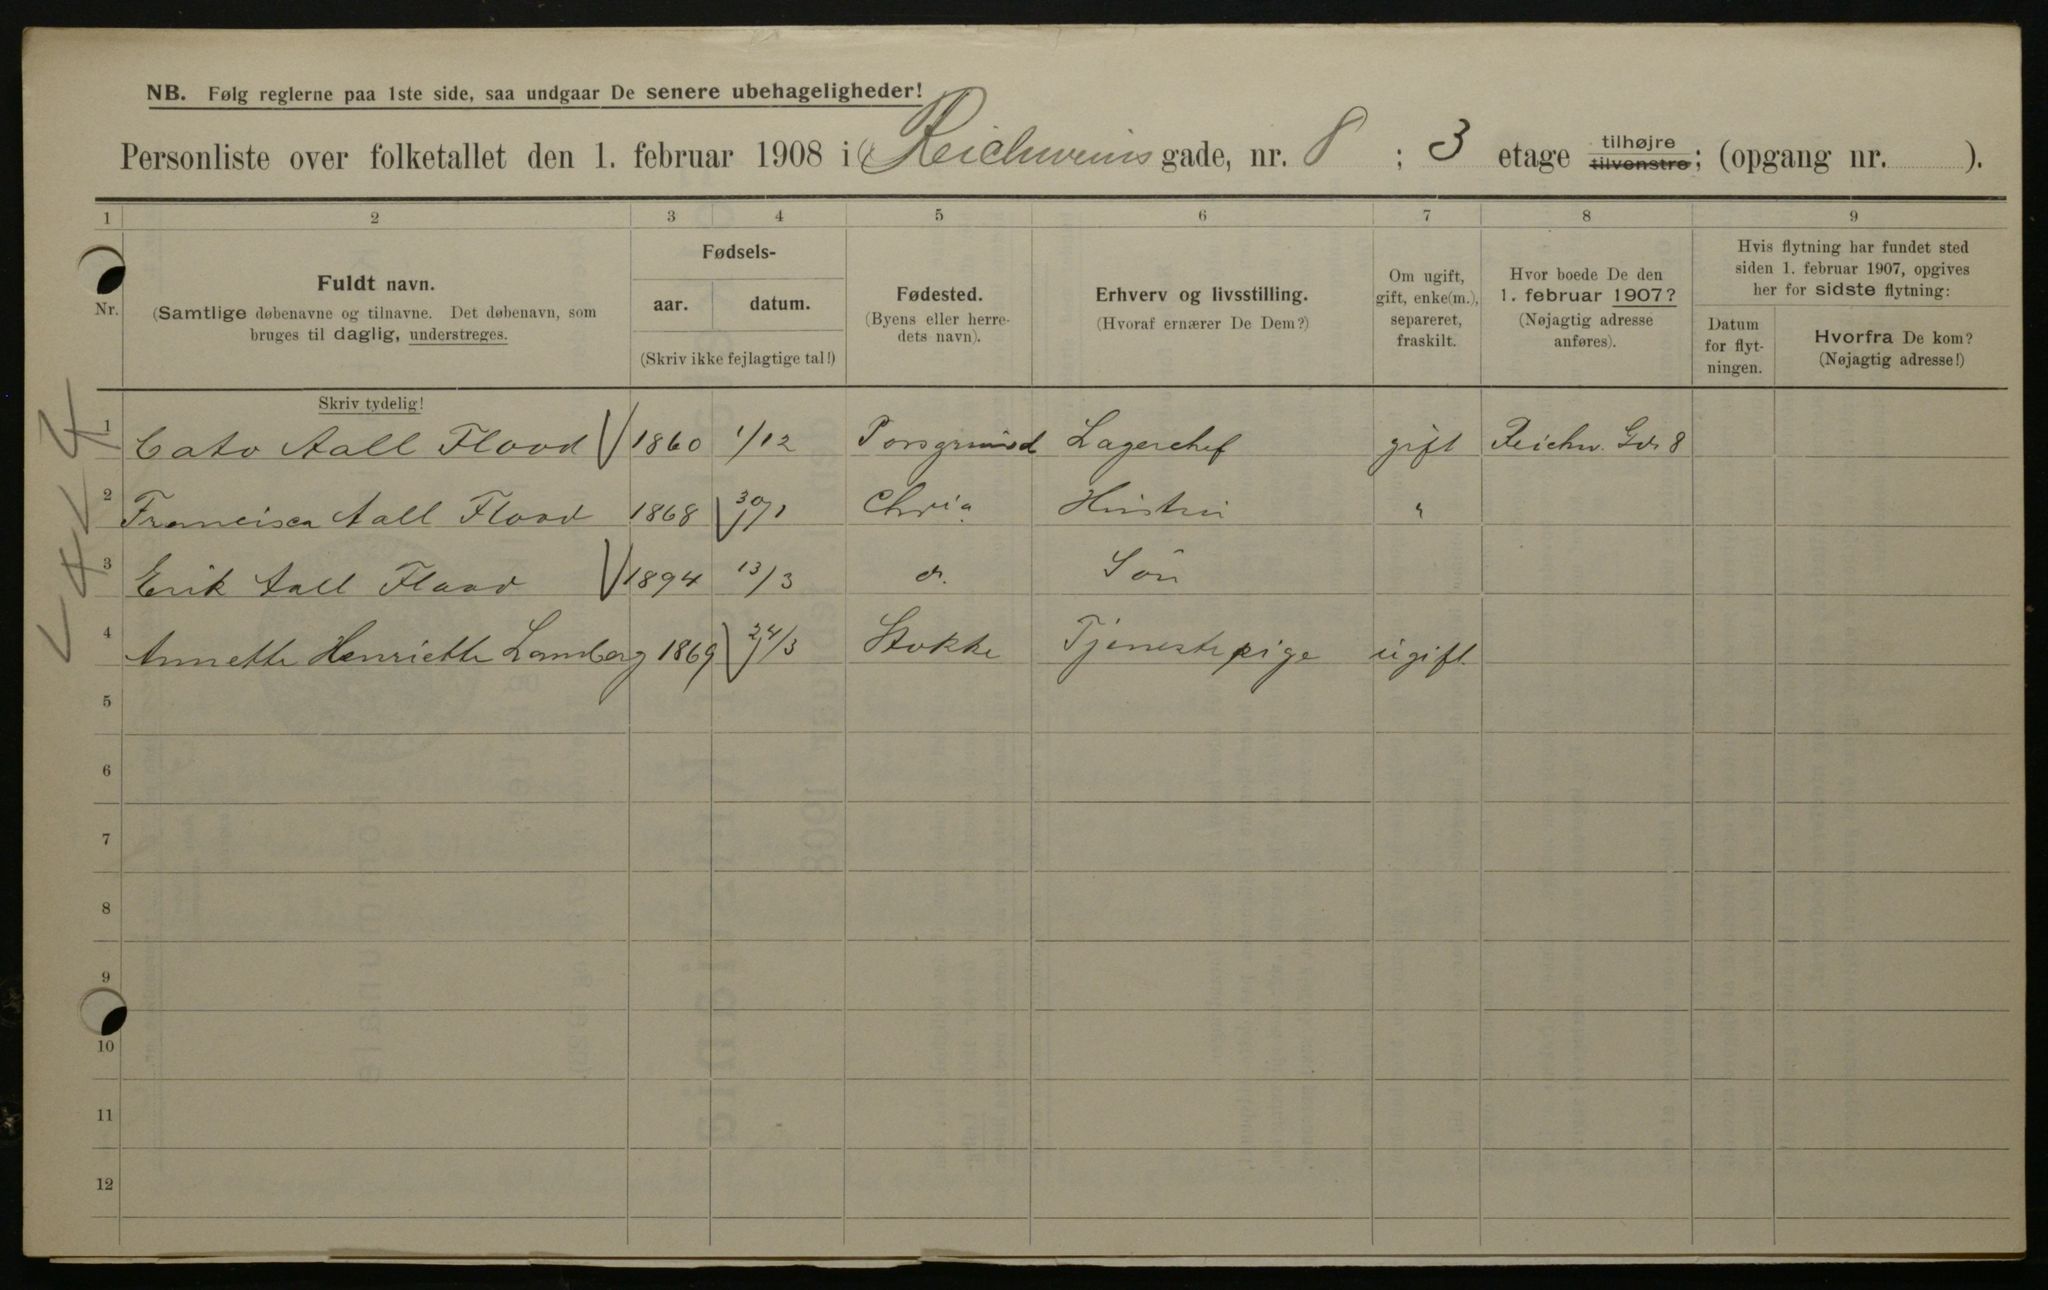 NB. Følg reglerne paa 1ste side, saa undgaar De senere ubehageligheder!
Personliste over folketallet den 1. februar 1908 i Reichweins gade, nr. 8 ; 3 etage tilhøjre tilvenstre; (opgang nr. ).
1 2 3 4 5 6 7 8 9
Nr. Fuldt navn. (Samtlige døbenavne og tilnavne. Det døbenavn, som bruges til daglig, understreges.
Fødsels- aar. datum. (Skriv ikke fejlagtige tal!)
Fødested. (Byens eller herredets navn).
Erhverv og livsstilling. (Hvoraf ernærer De Dem?)
Om ugift, gift, enke(m.), separeret, fraskilt.
Hvor boede De den 1. februar 1907? (Nøjagtig adresse anføres).
Hvis flytning har fundet sted siden 1. februar 1907, opgives her for sidste flytning:
Datum for flytningen. Hvorfra De kom? (Nøjagtig adresse!)
Skriv tydelig!
1 Cato Aall Flood 1860 1/12 Porsgrund Lagerchef gift Reichw. Gd. 8
2 Francisca Aall Flood 1868 30/1 Chria. Hustru "
3 Erik Aall Flood 1894 13/3 do. Sön
4 Annette Henriette Lamberg 1869 24/3 Stokke Tjenestepige ugift
5
6
7
8
9
10
11
12